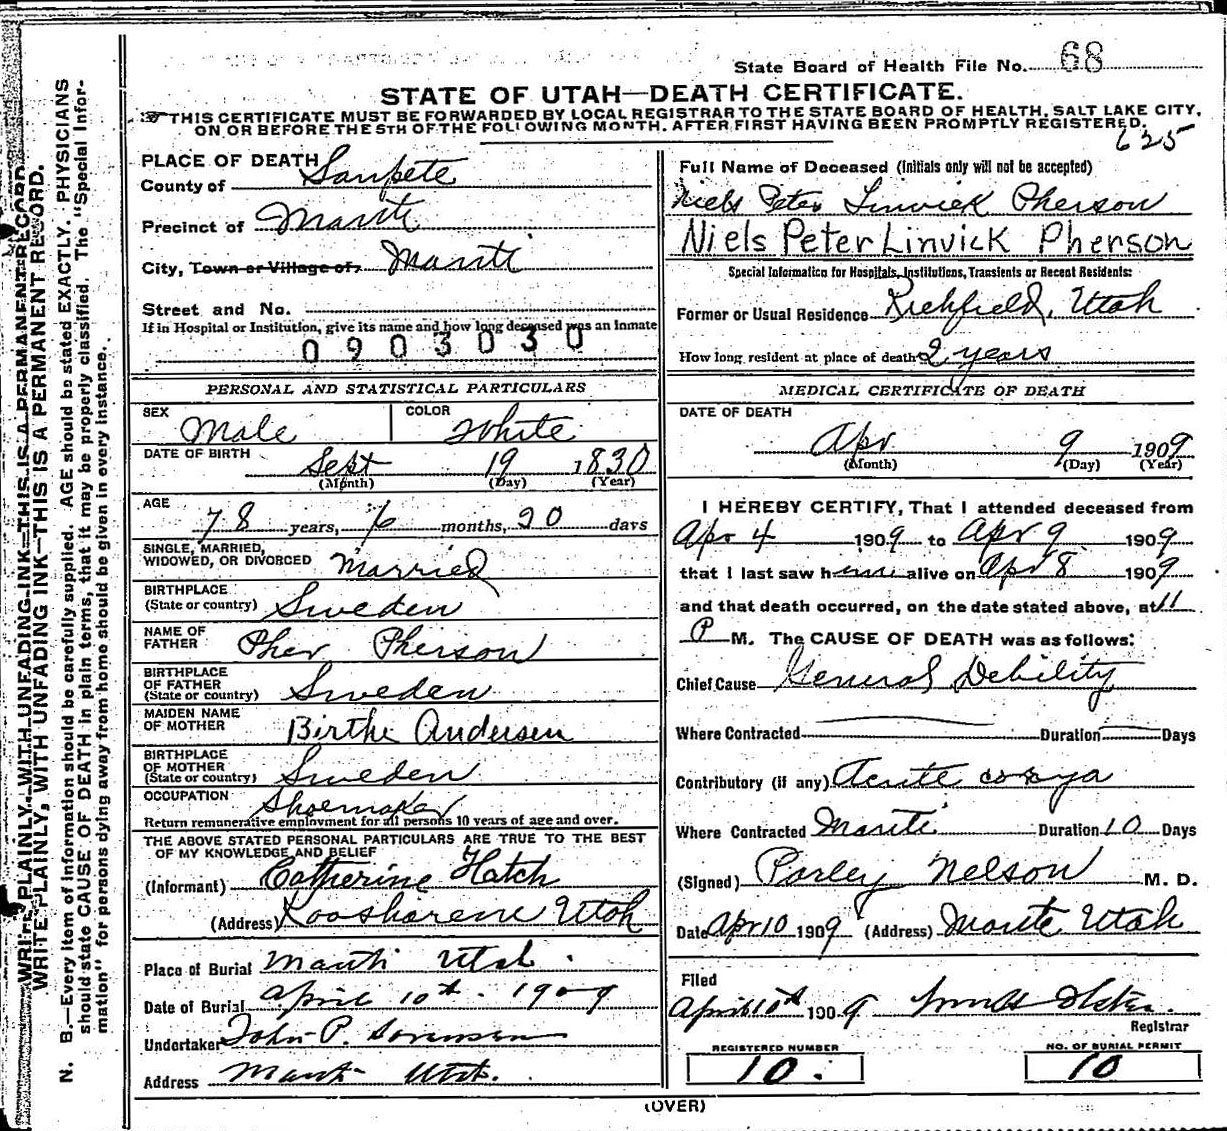 State Board of Health File No. 68
STATE OF UTAH—DEATH CERTIFICATE.
THIS CERTIFICATE MUST BE FORWARDED BY LOCAL REGISTRAR TO THE STATE BOARD OF HEALTH, SALT LAKE CITY,
ON OR BEFORE THE 5TH OF THE FOLLOWING MONTH. AFTER FIRST HAVING BEEN PROMPTLY REGISTERED.
625
WRITE PLAINLY, WITH UNFADING INK—THIS IS A PERMANENT RECORD.
WRITE PLAINLY, WITH UNFADING INK—THIS IS A PERMANENT RECORD.
N. B.—Every item of information should be carefully supplied. AGE should be stated EXACTLY. PHYSICIANS
should state CAUSE OF DEATH in plain terms, that it may be properly classified. The "Special Infor-
mation" for persons dying away from home should be given in every instance.
PLACE OF DEATH
County of Sanpete
Precinct of Manti
City, Town or Village of, Manti
Street and No.
If in Hospital or Institution, give its name and how long deceased was an Inmate
0903030
PERSONAL AND STATISTICAL PARTICULARS
SEX Male COLOR White
DATE OF BIRTH Sept 19 1830
(Month) (Day) (Year)
AGE 78 years, 6 months, 20 days
SINGLE, MARRIED,
WIDOWED, OR DIVORCED Married
BIRTHPLACE
(State or country) Sweden
NAME OF
FATHER Pher Pherson
BIRTHPLACE
OF FATHER
(State or country) Sweden
MAIDEN NAME
OF MOTHER Birthe Andersen
BIRTHPLACE
OF MOTHER
(State or country) Sweden
OCCUPATION Shoemaker
Return remunerative employment for all persons 10 years of age and over.
THE ABOVE STATED PERSONAL PARTICULARS ARE TRUE TO THE BEST
OF MY KNOWLEDGE AND BELIEF
(Informant) Catherine Hatch
(Address) Koosharem Utah
Place of Burial Manti Utah.
Date of Burial April 10th. 1909
Undertaker John P. Sorensen
Address Manti Utah.
Full Name of Deceased (Initials only will not be accepted)
Niels Peter Linvick Pherson
Niels Peter Linvick Pherson
Special Information for Hospitals, Institutions, Transients or Recent Residents:
Former or Usual Residence Richfield, Utah
How long resident at place of death 2 years
MEDICAL CERTIFICATE OF DEATH
DATE OF DEATH
Apr 9 1909
(Month) (Day) (Year)
I HEREBY CERTIFY, That I attended deceased from
Apr 4 1909 to Apr 9 1909
that I last saw him alive on Apr 8 1909
and that death occurred, on the date stated above, at 11
P M. The CAUSE OF DEATH was as follows:
Chief Cause General Debility
Where Contracted Duration Days
Contributory (if any) Acute
Where Contracted Manti Duration 10 Days
(Signed) Parley Nelson M. D.
Date Apr 10 1909 (Address) Manti Utah
Filed
April 10th 1909
Registrar
REGISTERED NUMBER
10.
NO. OF BURIAL PERMIT
10
(OVER)